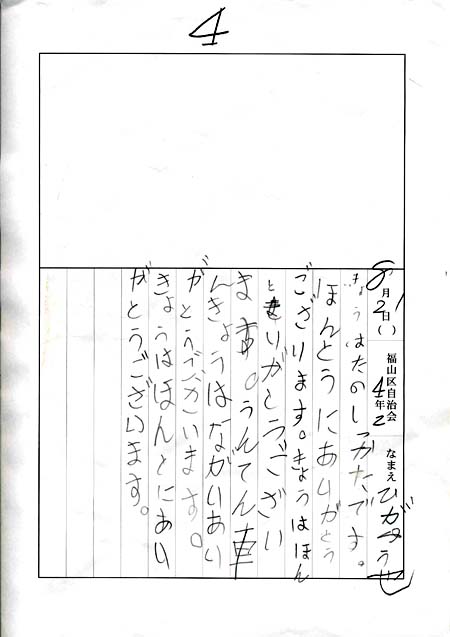 4
8月2日( ) 福山区自治会 4年2 なまえ
きょうはたのしかたです。
ほんとうにありがとう
ございります。きょうはほん
とありがとうござい
ます。うんてん車
んきょうはながいあい
がとうございます。
きょうはほんとにあい
がとうございます。